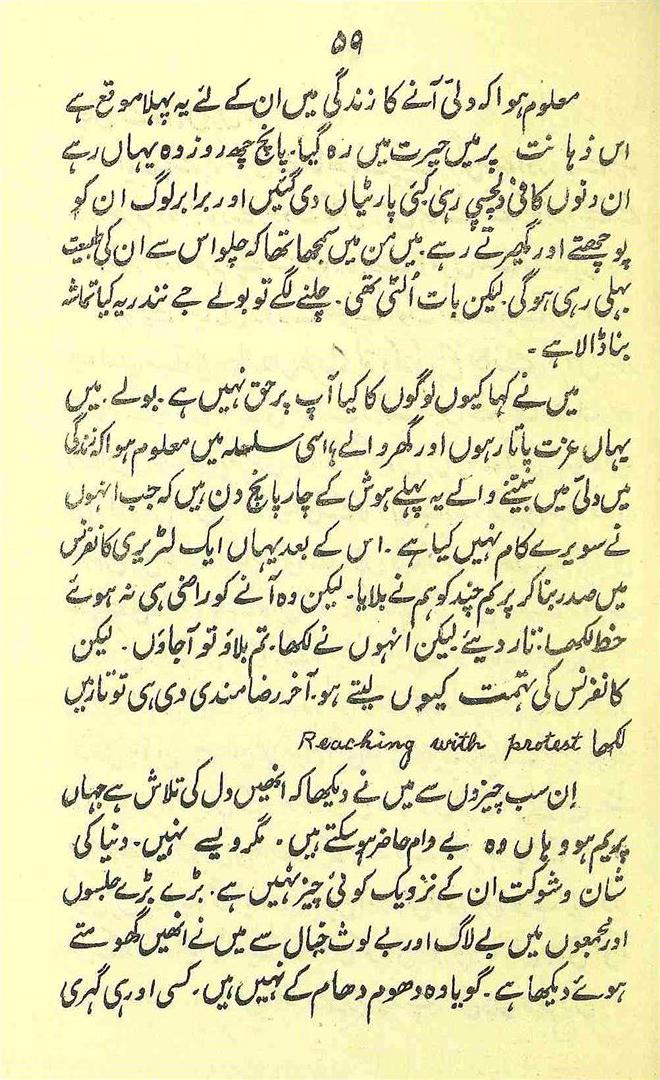 ۵۹
معلوم ہوا کہ دلیّ آنے کا زندگی میں ان کے لئے یہ پہلا موقع ہے
اس ذہانت پر میں حیرت میں رہ گیا۔ پانچ چھ روز وہ یہاں رہے
ان دنوں کافی دلچسپی رہی کئی پارٹیاں دی گئیں اور برابر لوگ ان کو
پوچھتے اور گھیرتے رہے۔ میں من میں سمجھا تھا کہ چلو اس سے ان کی طبیعت
بہلی رہی ہوگی۔ لیکن بات اُلٹی تھی۔ چلنے لگے تو بولے جے نندر یہ کیا تماشہ
بنا ڈالا ہے۔
میں نے کہا کیوں لوگوں کا کیا آپ پر حق نہیں ہے۔ بولے۔ میں
یہاں عزت پاتا رہوں اور گھر والے، اسی سلسلہ میں معلوم ہوا کہ زندگی
میں دلیّ میں بیتنے والے یہ پہلے ہوش کے چار پانچ دن ہیں کہ جب انہوں
نے سویرے کام نہیں کیا ہے۔ اس کے بعد یہاں ایک لٹریری کانفرنس
میں صدر بنا کر پریم چند کو ہم نے بلایا۔ لیکن وہ آنے کو راضی ہی نہ ہوئے
خط لکھا۔ تار دیئے۔ لیکن اُنہوں نے لکھا۔ تم بلاؤ تو آجاؤں۔ لیکن
کانفرنس کی تہمت کیوں لیتے ہو۔ آخر رضامندی دی ہی تو تار میں
لکھا Reaching with protest
اِن سب چیزوں سے میں نے دیکھا کہ انھیں دل کی تلاش ہے جہاں
پریم ہو وہاں وہ بے دام حاضر ہو سکتے ہیں۔ مگر ویسے نہیں۔ دنیا کی
شان و شوکت ان کے نزدیک کوئی چیز نہیں ہے۔ بڑے بڑے جلسوں
اور مجمعوں میں بے لاگ اور بے لوث خیال سے میں نے انھیں گھومتے
ہوئے دیکھا ہے۔ گویا وہ دھوم دھام کے نہیں ہیں۔ کسی اور ہی گہری